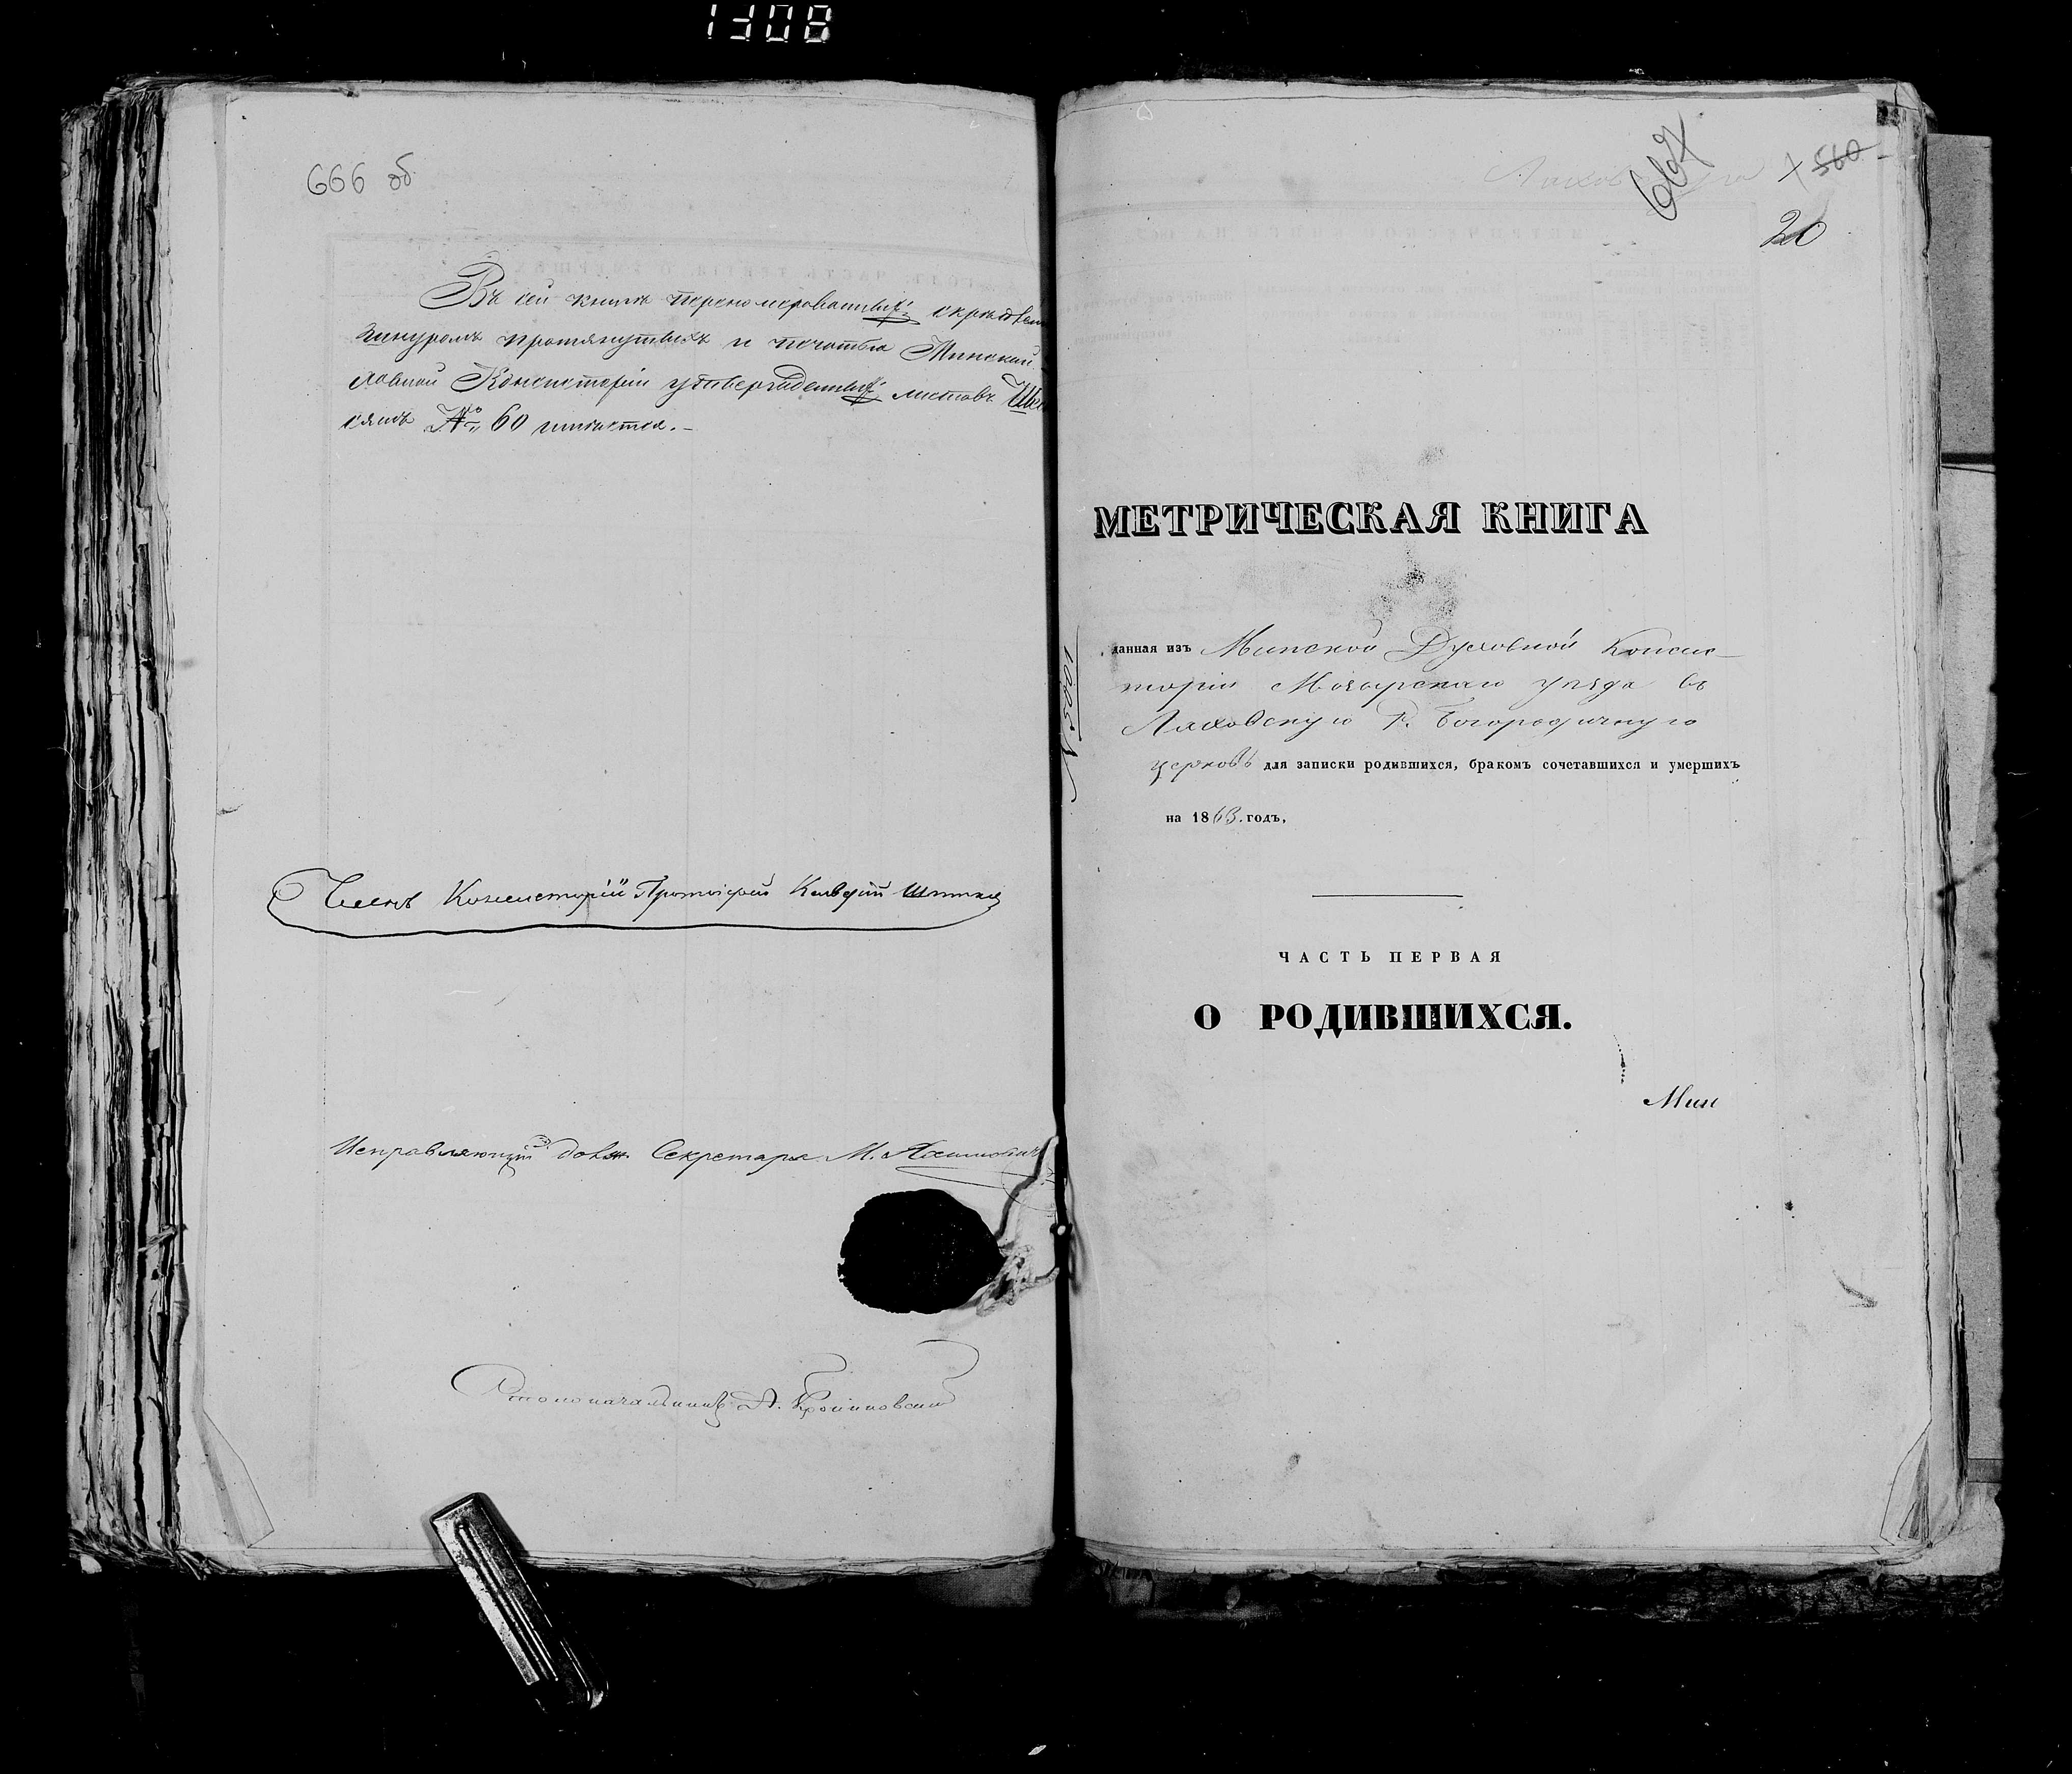 1308
666 об
Въ сей книгѣ перенумерованныхъ скрѣпленн
шнуромъ протянутыхъ и печатью Минской
ховной Консисторіи утвержденныхъ листовъ Шес
сятъ № 60 имѣется.
Членъ Консисторіи Протоіерей
Исправляющій долж. Секретаря М.
Столоначальникъ
667
560
20
МЕТРИЧЕСКАЯ КНИГА
данная изъ Минской Духовной Консис-
торіи Мозырскаго уѣзда въ
Ляховскую Р. Богородичную
церковь для записки родившихся, бракомъ сочетавшихся и умершихъ
на 1863. годъ,
ЧАСТЬ ПЕРВАЯ
О РОДИВШИХСЯ.
Мин